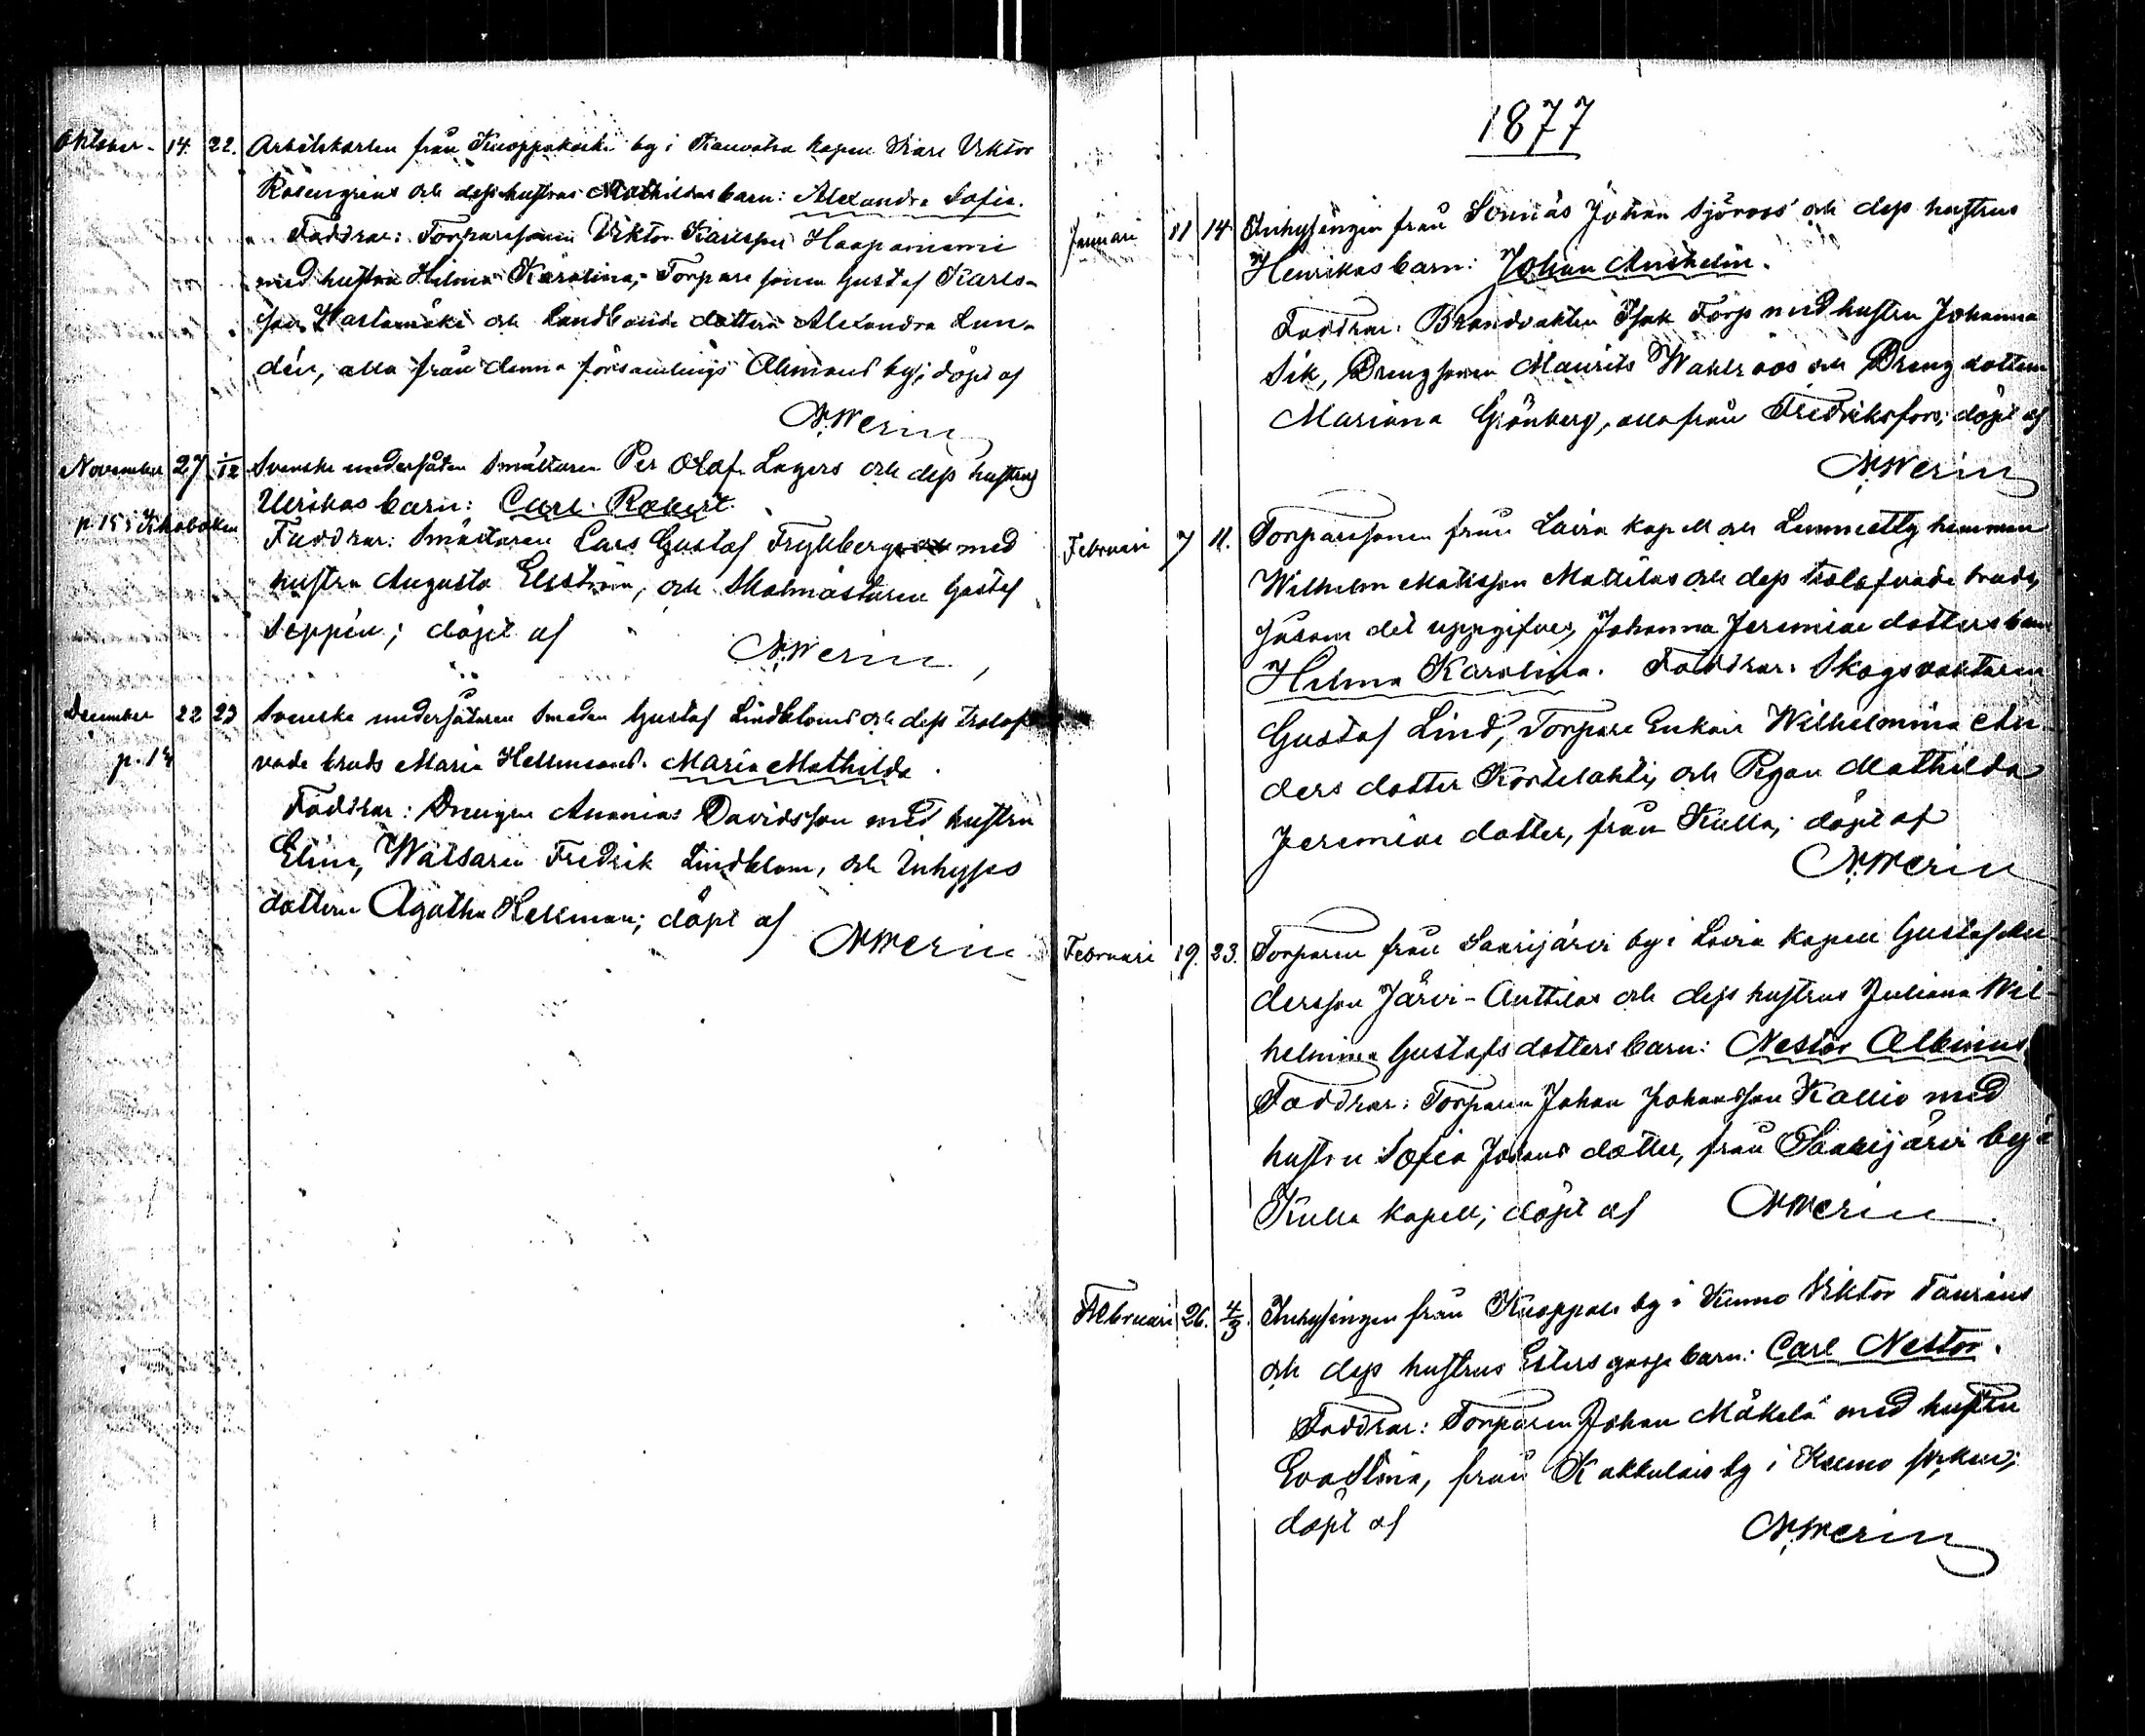 Oktober 14. 22. Arbetskarlen från by i kapell Karl Viktor
Rosengrens och dess hustrus Mathildas barn: Alexandra Sofia.
Faddrar: Torparesonen Viktor Karlsson Haapaniemi
med hustru Hilma Karolina, Torparesonen Gustaf Karls-
son och Landbonde dottern Alexandra Lun-
dén, alla från denna församlings by; döpt af
N. Merin
November 27 1/12 Svenske undersåten Smältaren Per Olof Lagers och dess hustrus
Ulrikas barn: Carl Robert.
p. 15 i
Faddrar: Smältaren Lars Gustaf Frykberg med
hustru Augusta Elström, och Skolmästaren Gustaf
Seppén; döpt af
N. Merin
December 22 23 Svenske undersåtaren Smeden Gustaf Lindbloms och dess trolof-
p. 14 vade bruds Maria Hellmans Maria Mathilda.
Faddrar: Drengen Ananias Davidsson med hustru
Elina, Walsaren Fredrik Lindblom, och Inhyses
dottern Agatha Hellman; döpt af
N. Merin
1877
Januari 11 14 Inhysingen från Sonnäs Johan Sjöroos och dess hustrus
Henrikas barn: Johan Anshelm.
Faddrar: Brandvakten Isak Torp med hustru Johanna
Sik, Drengsonen Maurits Wahlroos och Dreng dottern
Mariana Grönberg, alla från Fredriksfors; döpt af
N. Merin
Februari 7 11. Torparesonen från Lavia kapell och hemman
Wilhelm Matsson Mattilas och dess trolofvade bruds,
såsom det uppgifves, Johanna Jeremiae dotters barn
Hilma Karolina. Faddrar: Skogsvaktaren
Gustaf Lind, Torpare Enkan Wilhelmina An-
ders dotter Kortelahti, och Pigan Mathilda
Jeremiae dotter, från Kulla; döpt af
N. Merin
Februari 19. 23. Torparen från Saarijärvi by i Lavia kapell Gustaf An-
dersson Järvi-Anttilas och dess hustrus Juliana Wil-
helmina Gustafsdotters barn: Nestor Albinus
Faddrar: Torparen Johan Johansson Kallio med
hustru Sofia Johans dotter, från Saarijärvi by i
Kulla kapell; döpt af N. Merin
Februari 26. 4/3. Inhysingen från by i Kumo Viktor
och dess hustrus Esters gosse barn: Carl Nestor.
Faddrar: Torparen Johan Mäkelä med hustru
Eva Stina, från by i Kumo socken;
döpt af N. Merin